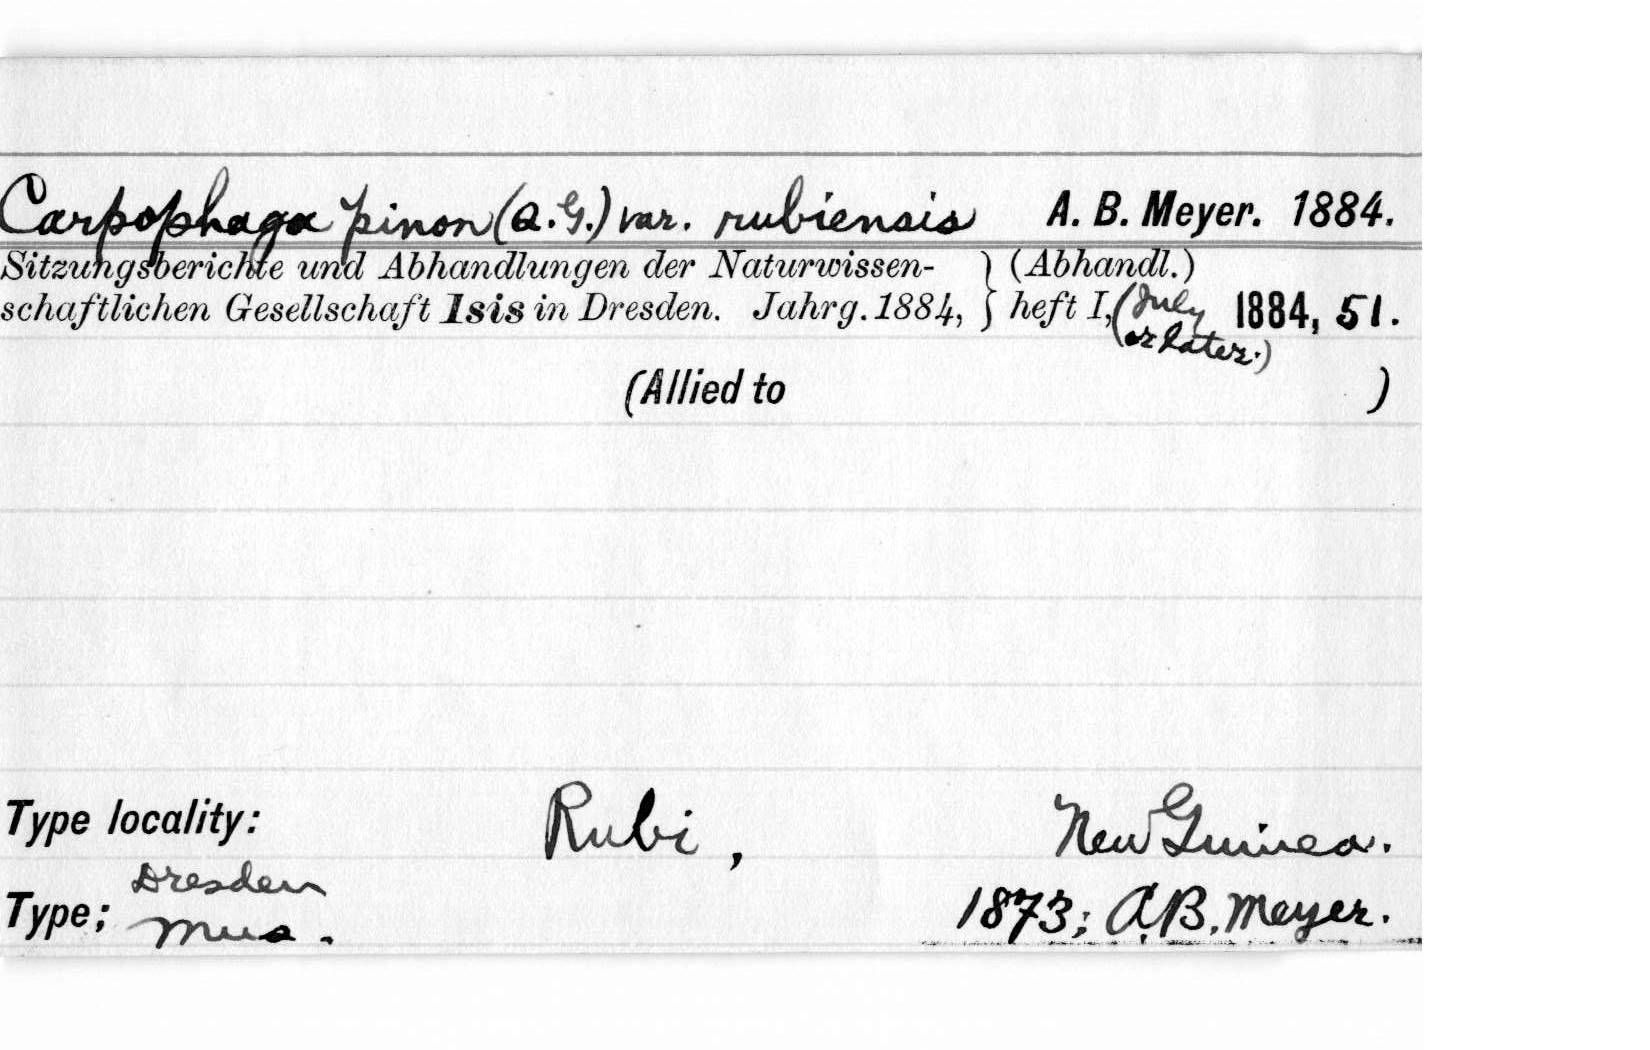 Carpophaga pinon (Q.G.) var. rubiensis A. B. Meyer. 1884.
Sitzungsberichte und Abhandlungen der Naturwissen- } (Abhandl.)
schaftlichen Gesellschaft Isis in Dresden. Jahrg. 1884, } heft I, (July 1884, 51.
or later.)
(Allied to )
Type locality: Rubi, New Guinea.
Dresden
Type; Mus. 1873; A.B. Meyer.